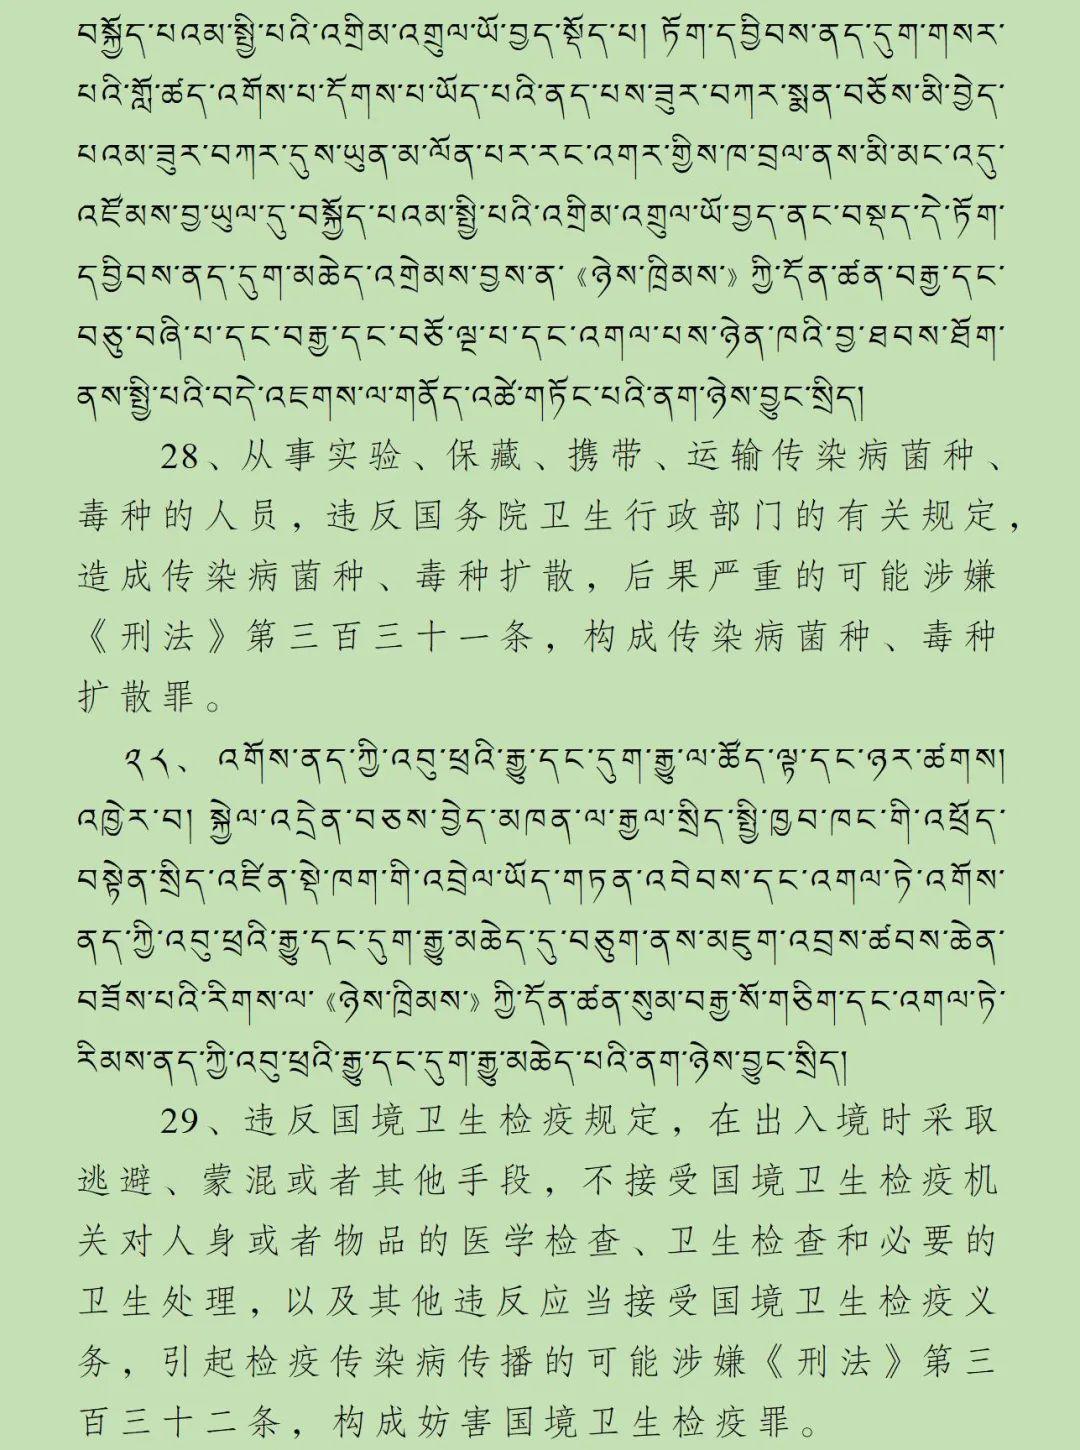 བསྐྱོད་པའམ་སྤྱི་པའི་འགྲིམ་འགྲུལ་ཡོ་བྱད་སྡོད་པ། ཏོག་དབྱིབས་ནད་དུག་གསར་
པའི་གློ་ཚད་འགོས་པ་དོགས་པ་ཡོད་པའི་ནད་པས་ཟུར་བཀར་སྨན་བཅོས་མི་བྱེད་
པའམ་ཟུར་བཀར་དུས་ཡུན་མ་ལོན་པར་རང་འགར་གྱིས་ཁ་བྲལ་ནས་མི་མང་འདུ་
འཛོམས་བྱ་ཡུལ་དུ་བསྐྱོད་པའམ་སྤྱི་པའི་འགྲིམ་འགྲུལ་ཡོ་བྱད་ནང་བསྡད་དེ་ཏོག་
དབྱིབས་ནད་དུག་མཆེད་འགྲེམས་བྱས་ན་《ཉེས་ཁྲིམས་》ཀྱི་དོན་ཚན་བརྒྱ་དང་
བཅུ་བཞི་པ་དང་བརྒྱ་དང་བཅོ་ལྔ་པ་དང་འགལ་པས་ཉེན་ཁའི་བྱ་ཐབས་ཐོག་
ནས་སྤྱི་པའི་བདེ་འཇགས་ལ་གནོད་འཚེ་གཏོང་པའི་ནག་ཉེས་བྱུང་སྲིད།
28、从事实验、保藏、携带、运输传染病菌种、
毒种的人员，违反国务院卫生行政部门的有关规定，
造成传染病菌种、毒种扩散，后果严重的可能涉嫌
《刑法》第三百三十一条，构成传染病菌种、毒种
扩散罪。
༢༨、 འགོས་ནད་ཀྱི་འབུ་ཕྲའི་རྒྱུ་དང་དུག་རྒྱུ་ལ་ཚོད་ལྟ་དང་ཉར་ཚགས།
འཁྱེར་བ། སྐྱེལ་འདྲེན་བཅས་བྱེད་མཁན་ལ་རྒྱལ་སྲིད་སྤྱི་ཁྱབ་ཁང་གི་འཕྲོད་
བསྟེན་སྲིད་འཛིན་སྡེ་ཁག་གི་འབྲེལ་ཡོད་གཏན་འབེབས་དང་འགལ་ཏེ་འགོས་
ནད་ཀྱི་འབུ་ཕྲའི་རྒྱུ་དང་དུག་རྒྱུ་མཆེད་དུ་བཅུག་ནས་མཇུག་འབྲས་ཚབས་ཆེན་
བཟོས་པའི་རིགས་ལ་《ཉེས་ཁྲིམས་》ཀྱི་དོན་ཚན་སུམ་བརྒྱ་སོ་གཅིག་དང་འགལ་ཏེ་
རིམས་ནད་ཀྱི་འབུ་ཕྲའི་རྒྱུ་དང་དུག་རྒྱུ་མཆེད་པའི་ནག་ཉེས་བྱུང་སྲིད།
29、违反国境卫生检疫规定，在出入境时采取
逃避、蒙混或者其他手段，不接受国境卫生检疫机
关对人身或者物品的医学检查、卫生检查和必要的
卫生处理，以及其他违反应当接受国境卫生检疫义
务，引起检疫传染病传播的可能涉嫌《刑法》第三
百三十二条，构成妨害国境卫生检疫罪。